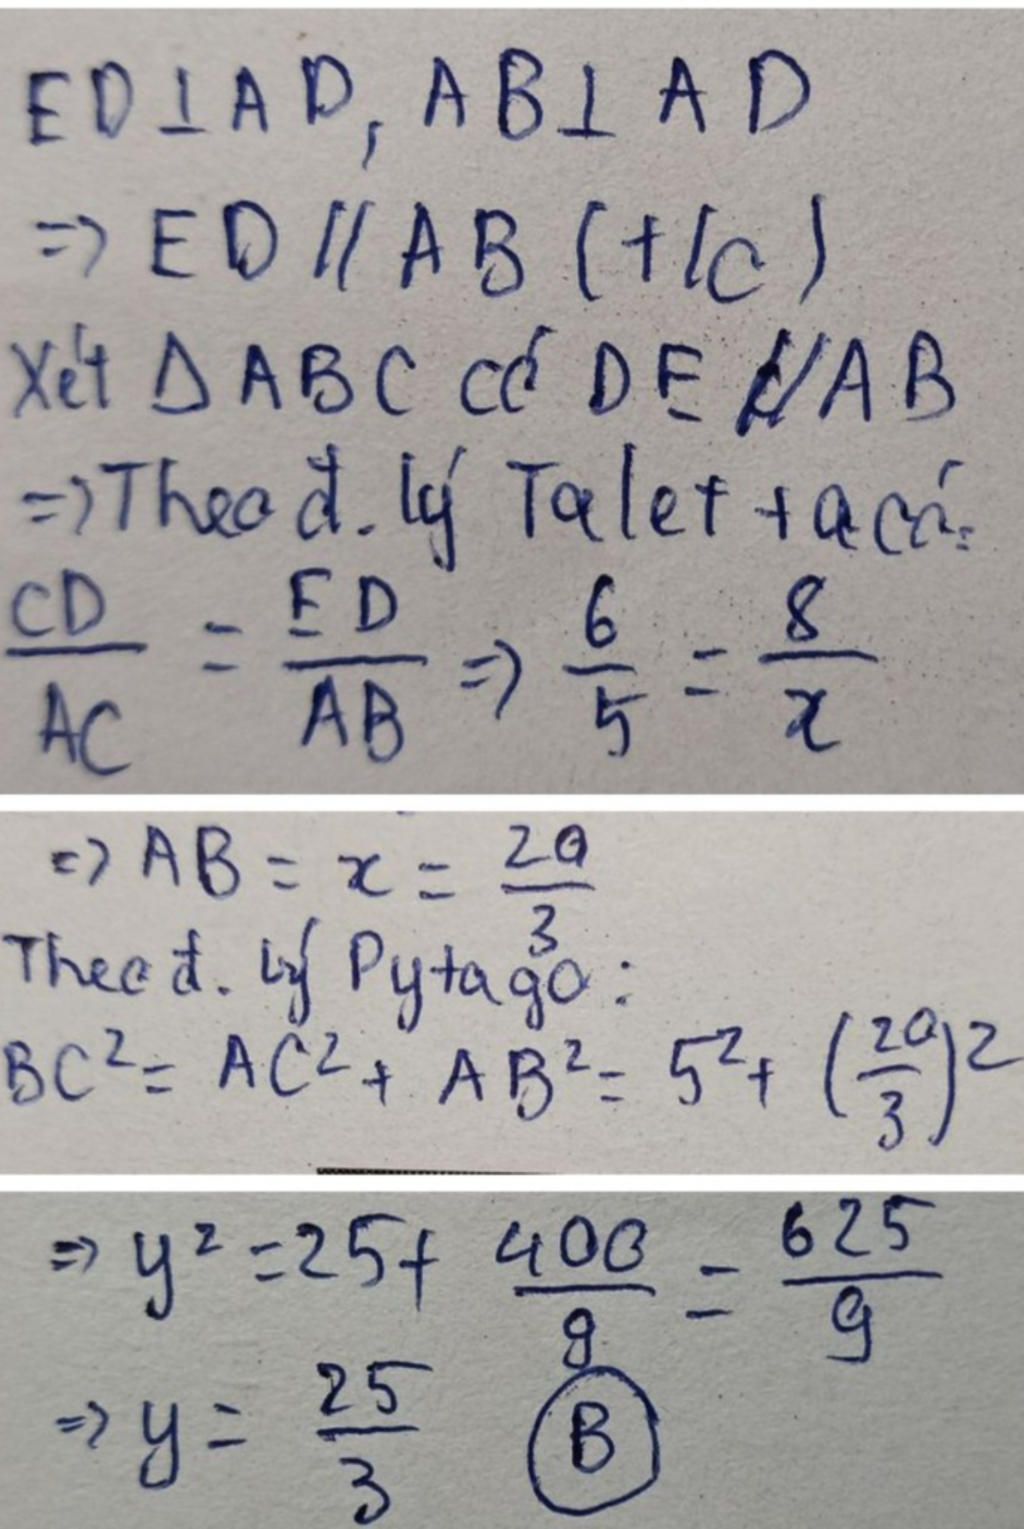 ED ⊥ AD, AB ⊥ AD
=> ED // AB (t/c)
Xét Δ ABC có DE // AB
=> Theo đ. lý Talet ta có:
CD/AC = ED/AB => 6/5 = 8/x
=> AB = x = 20/3
Theo đ. lý Pytago:
BC² = AC² + AB² = 5² + (20/3)²
=> y² = 25 + 400/9 = 625/9
=> y = 25/3 B